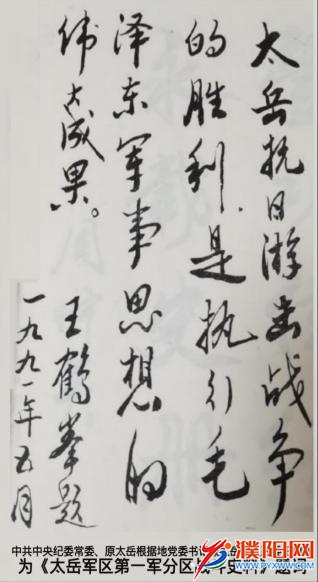 太岳抗日游击战争
的胜利是执行毛
泽东军事思想的
伟大成果。
王鹤峯题
一九九一年五月
中共中央纪委常委、原太岳根据地党委书记
为《太岳军区第一军分区战斗史料》题词
濮阳网